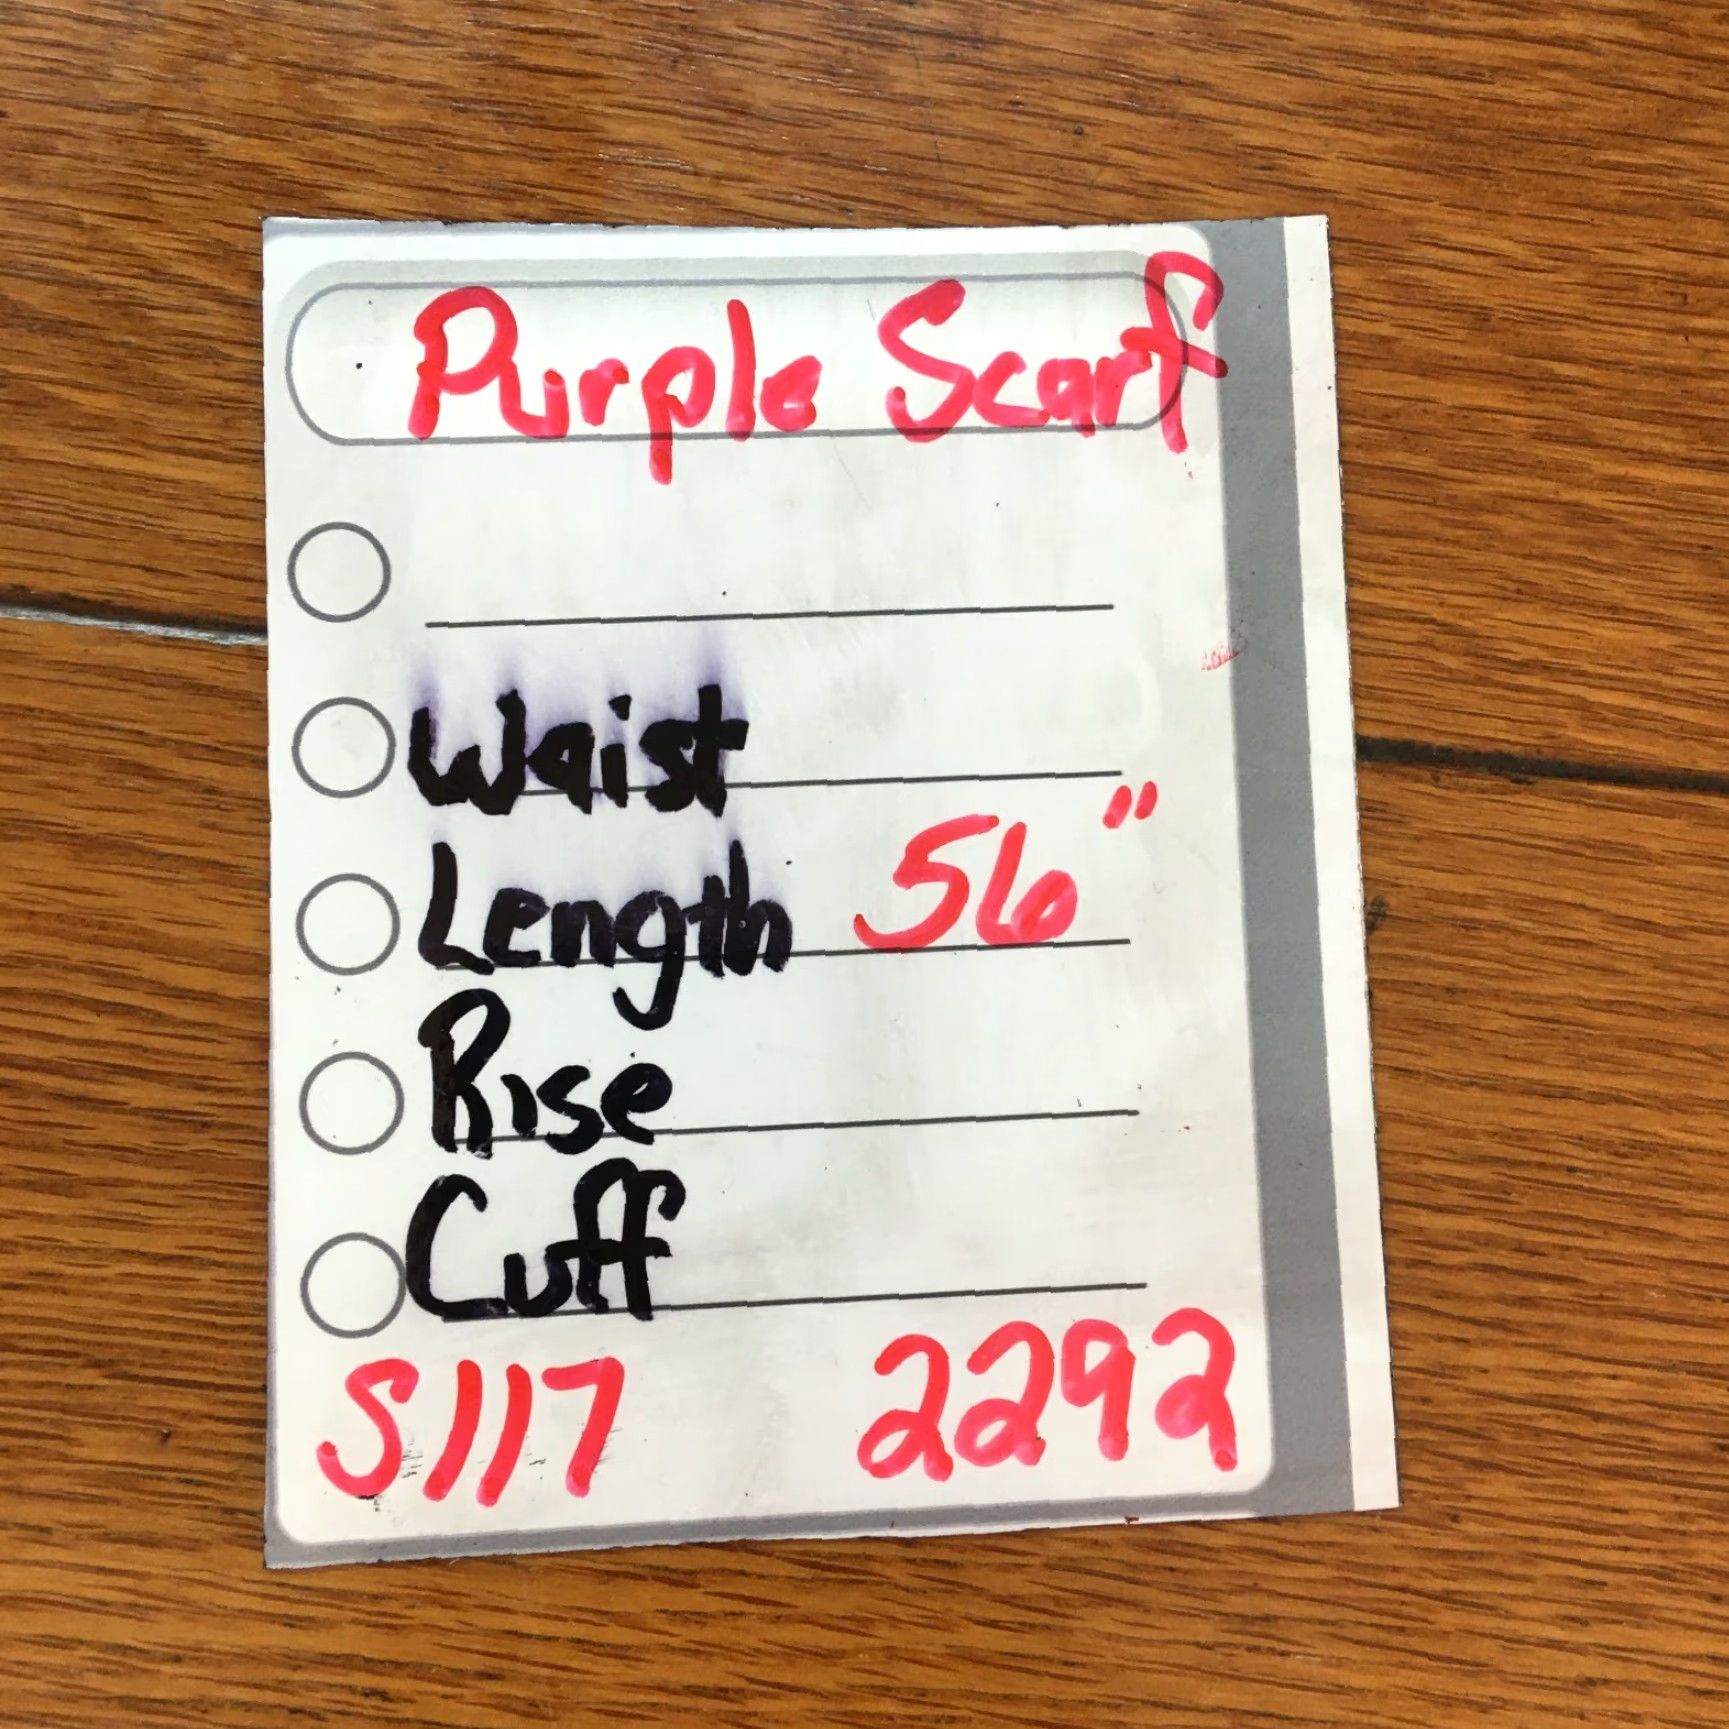 Purple Scarf
Waist
Length 56"
Rise
Cuff
S117 2292